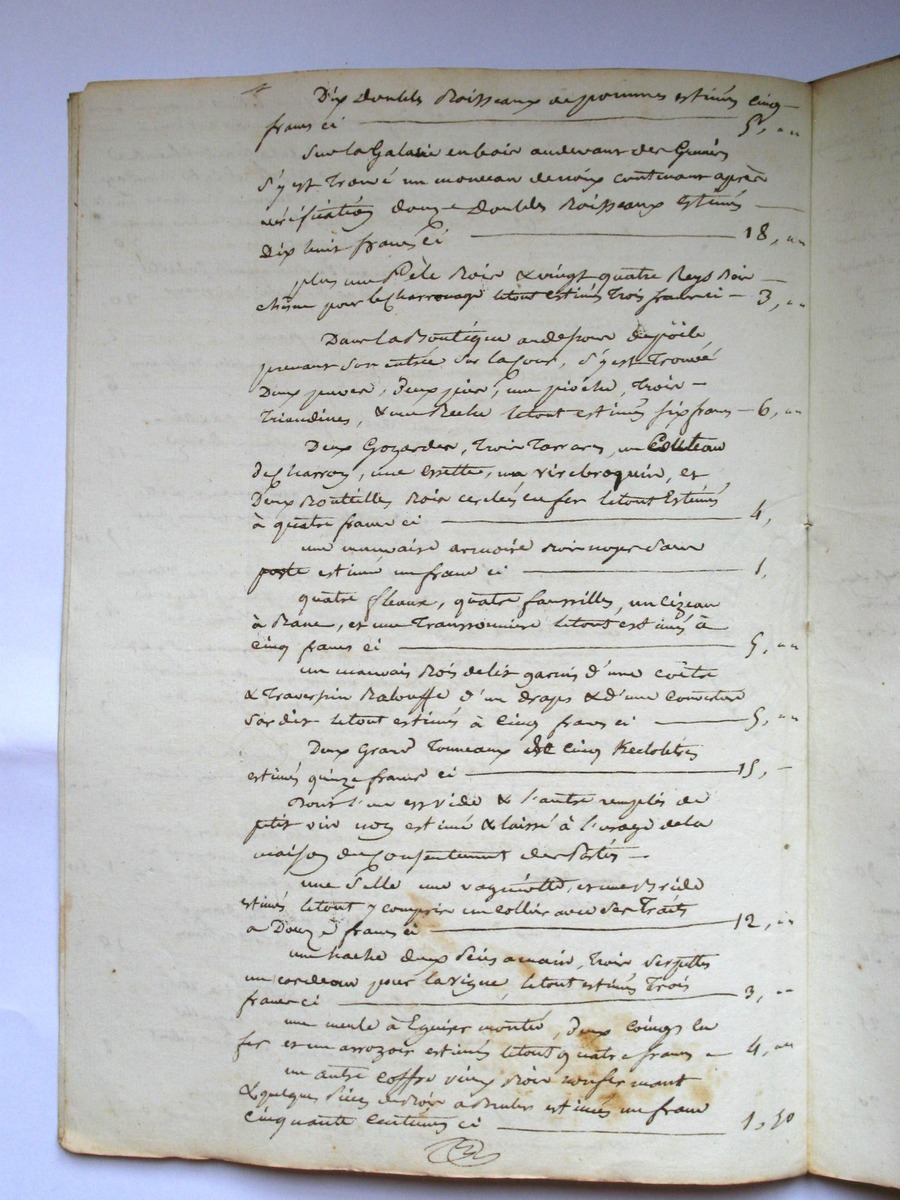 Dix doubles Boisseaux de pommes estimés cinq
francs ci 5, ""
Sur la Galerie en bois audevant des Greniers
s'y est Trouvé un monceau de noix contenant après
vérification douze Doubles Boisseaux estimés
Dix huit francs ci 18, ""
plus une Pèle Bois & vingt quatre Reys Bois
chêne pour le Charronage letout estimés Trois francs ci 3, ""
Dans la Boutique audessous du poile
prenant son entrée sur la Cour, s'y est Trouvé
Deux deux une pioche, trois
Triandines, & une Beche letout estimés six francs 6, ""
Deux Gozardes, trois Tarrares, un Couteau
de Charron, une essette, un virebroquin, et
Deux Bouteilles Bois cerclées en fer letout Estimés
à quatre francs ci 4,
une mauvaise armoire Bois noyer sans
porte estimée un franc ci 1,
quatre fleaux, quatre faussilles, un Cizeau
à Bane, et une Transonnière letout estimés à
cinq francs ci 5, ""
un mauvais Bois de lit garnis d'une coitre
& Traverspin Balouffe d'un draps & d'une Couverture
Sardis letout estimés à Cinq francs ci 5, ""
Deux Grand Tonneaux de Cinq Hectolitres
estimés quinze francs ci 15, "
Dont l'un est vide & l'autre remplis de
petit vin non estimé & laissé à l'usage de la
maison du Consentement des Parties
une Selle une et une Bride
estimés letout y compris un collier avec ses Traits
a Douze francs ci 12, ""
une hache deux Scies a main, trois serpettes
un cordeau pour la vigne, letout estimés Trois
francs ci 3, ""
une meule à Eguiser montée, deux Coings en
fer et un arrozoir estimés letout quatre francs 4, ""
un autre coffre vieux Bois renfermant
& quelques Pièces de Bois a Bruler estimés un franc
cinquante centimes ci 1,50